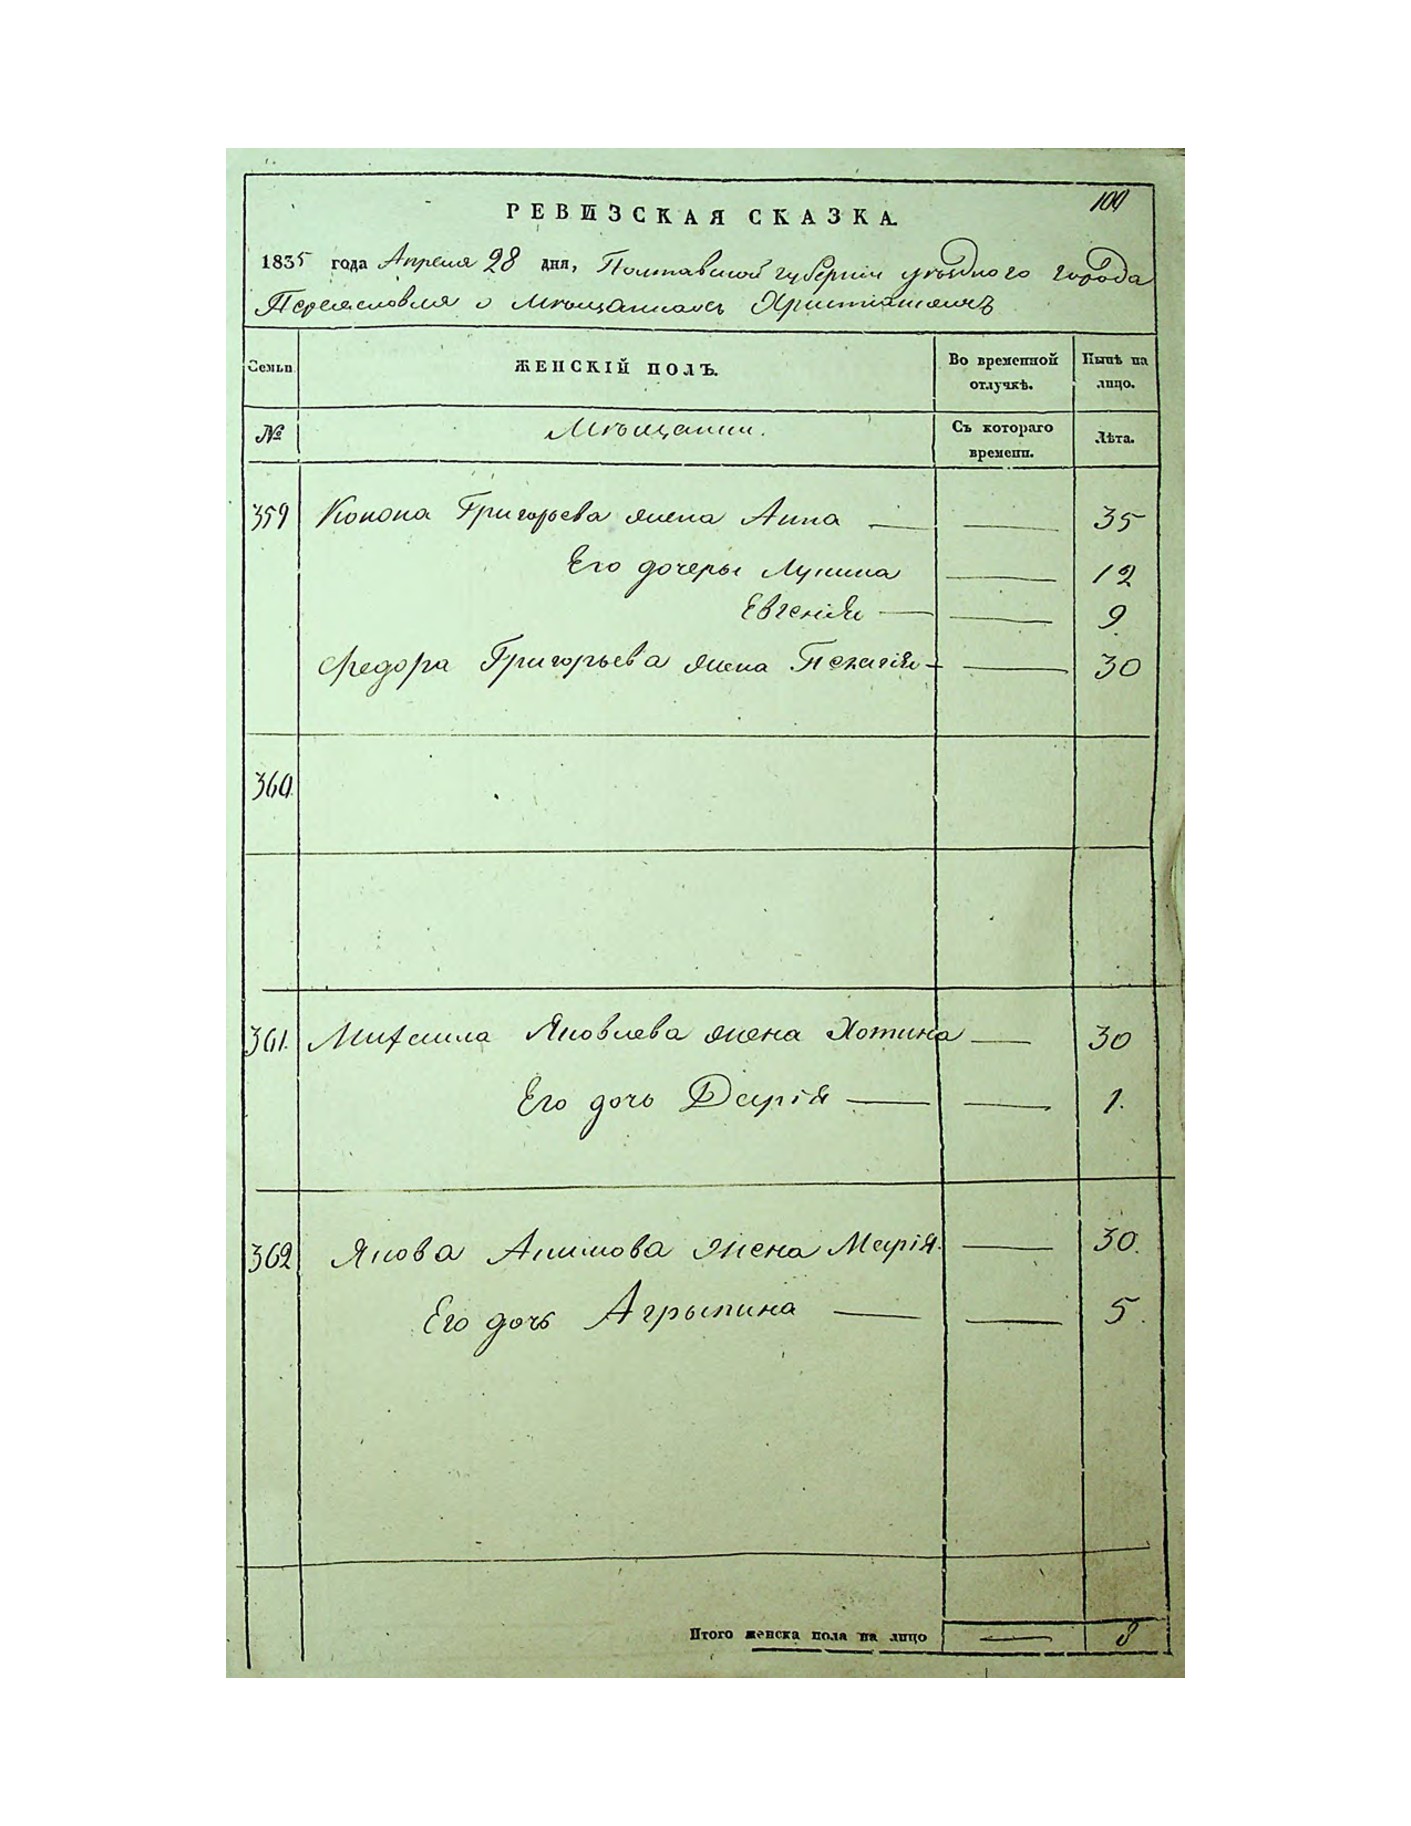 100
РЕВИЗСКАЯ СКАЗКА.
1835 года Апреля 28 дня, Полтавской губернии уѣзднаго города
Переяславля о мѣщанахъ Христіянехъ
Семьи ЖЕНСКІЙ ПОЛЪ. Во временной отлучкѣ. Нынѣ на лицо.
№ Мѣщании. Съ котораго времени. Лѣта.
359 Конона Григорьева жена Анна — — 35
Его дочеры Лукина — 12
Евгенія — — 9
Федора Григорьева жена Пелагія — — 30
360.
361. Михаила Яковлева жена Хотина — 30
Его дочь Дарія — — 1.
362 Якова Акимова жена Марія. — 30.
Его дочь Агрыпина — — 5.
Итого женска пола на лицо — 8